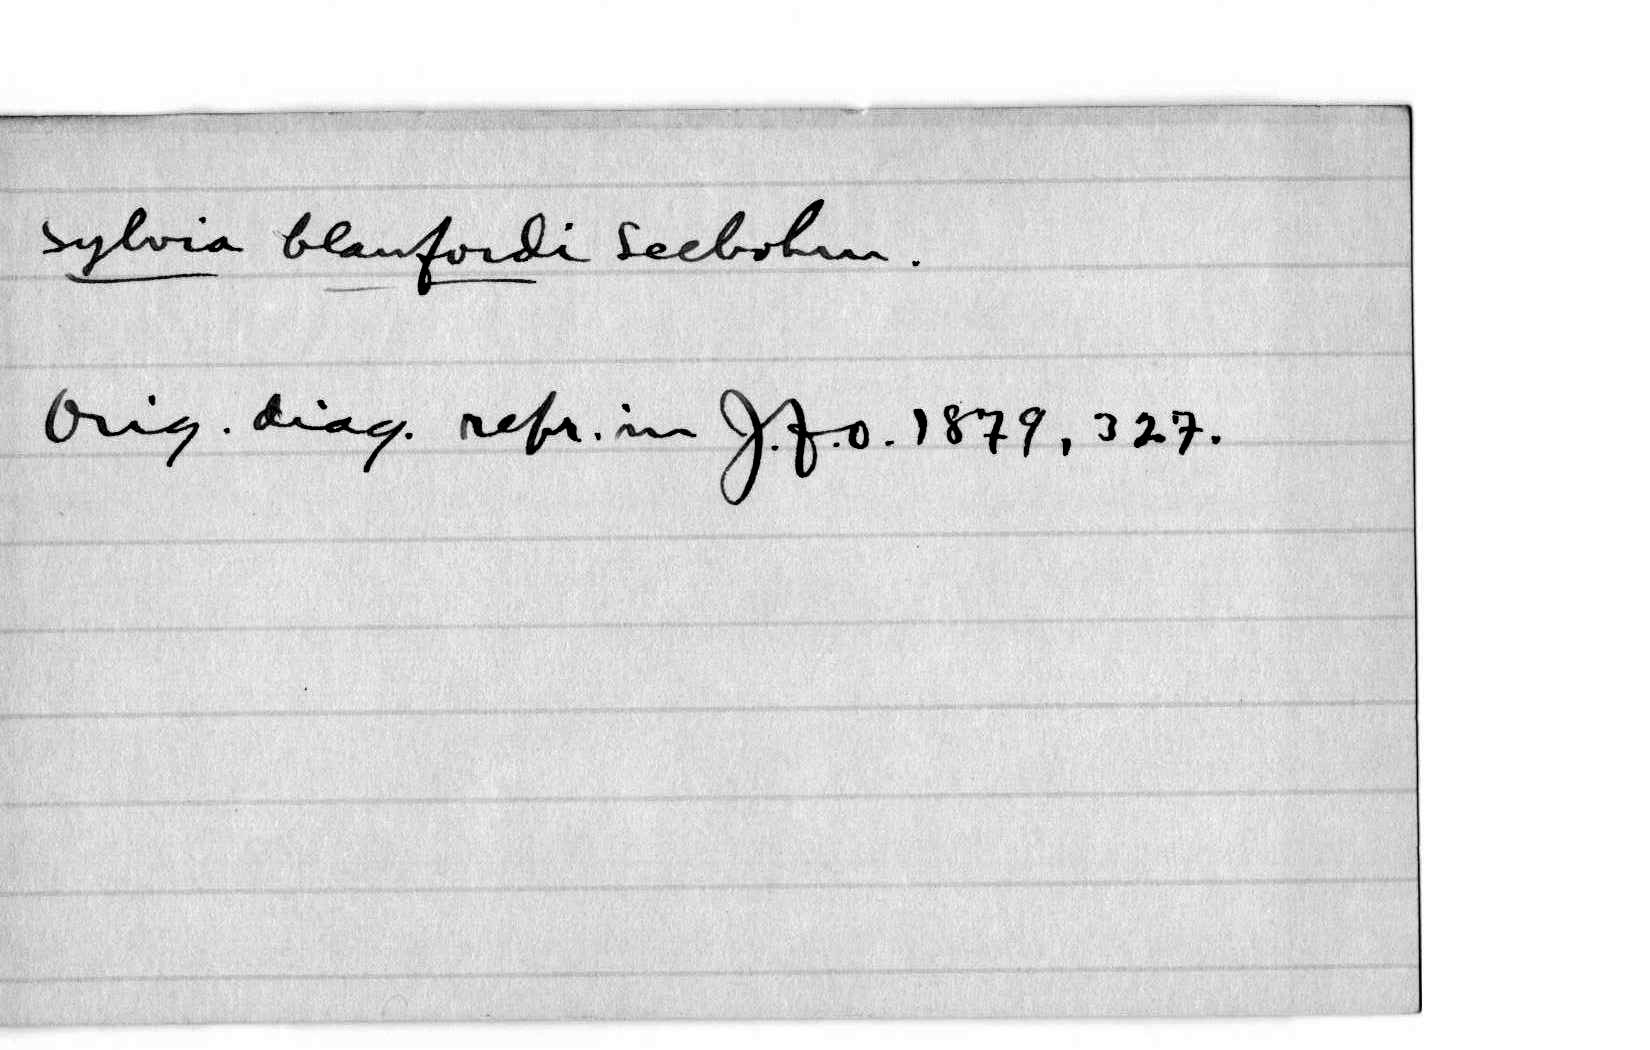 Sylvia blanfordi Seebohm.
Orig. diag. repr. in J.f.O. 1879, 327.